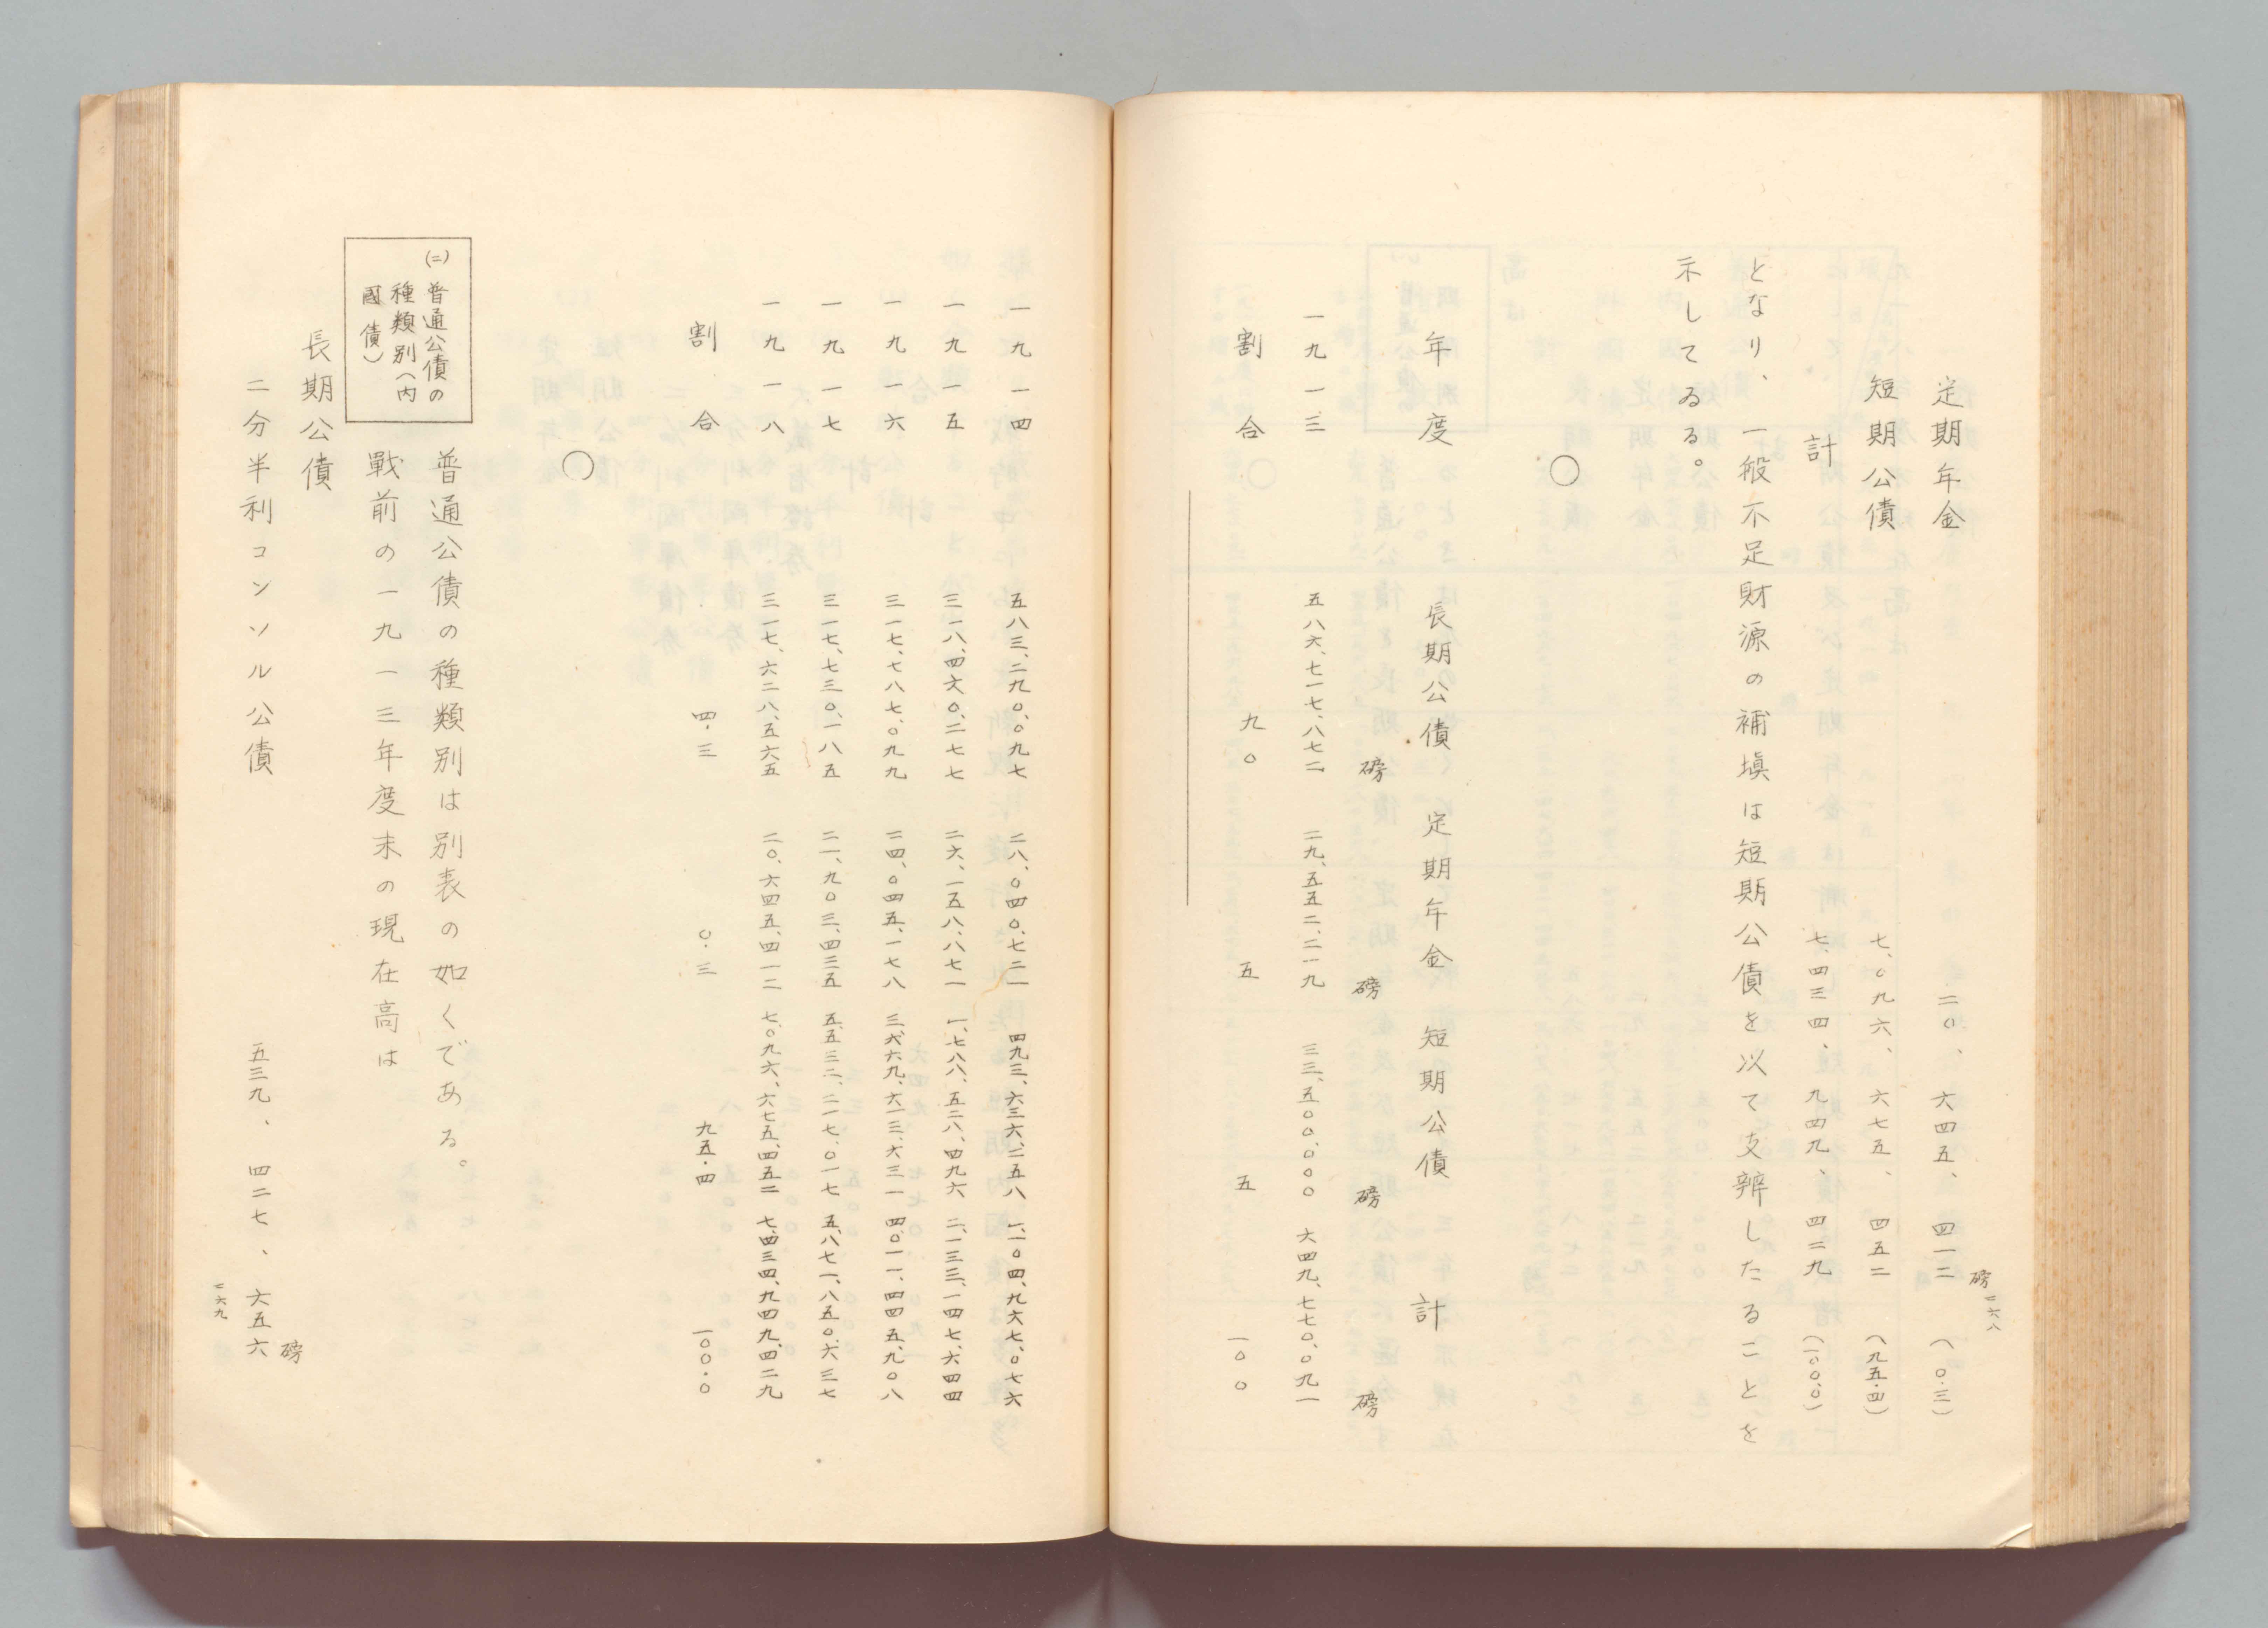 二六八
定期年金　二〇、六四五、四一二磅（〇.三）
短期公債　七、〇九六、六七五、四五二（九五.四）
計　七、四三四、九四九、四二九（一〇〇.〇）
となり、一般不足財源の補塡は短期公債を以て支辨したることを
示してゐる。
〇
年度　長期公債　定期年金　短期公債　計
磅　磅　磅　磅
一九一三　五八六、七一七、八七二　二九、五五二、二一九　三三、五〇〇、〇〇〇　六四九、七七〇、〇九一
割合　九〇　五　五　一〇〇
一九一四　五八三、二九〇、〇九七　二八、〇四〇、七二一　四九三、六三六、二五八　一、一〇四、九六七、〇七六
一九一五　三一八、四六〇、二七七　二六、一五八、八七一　一、七八八、五二八、四九六　二、一三三、一四七、六四四
一九一六　三一七、七八七、〇九九　二四、〇四五、一七八　三、六六九、六一三、六三一　四、〇一一、四四五、九〇八
一九一七　三一七、七三〇、一八五　二一、九〇三、四三五　五、五三二、二一七、〇一七　五、八七一、八五〇、六三七
一九一八　三一七、六二八、五六五　二〇、六四五、四一二　七、〇九六、六七五、四五二　七、四三四、九四九、四二九
割合　四.三　〇.三　九五.四　一〇〇.〇
〇
(二)普通公債の
種類別（内
國債）
普通公債の種類別は別表の如くである。
戰前の一九一三年度末の現在高は
長期公債
磅
二分半利コンソル公債　五三九、四二七、六五六
二六九